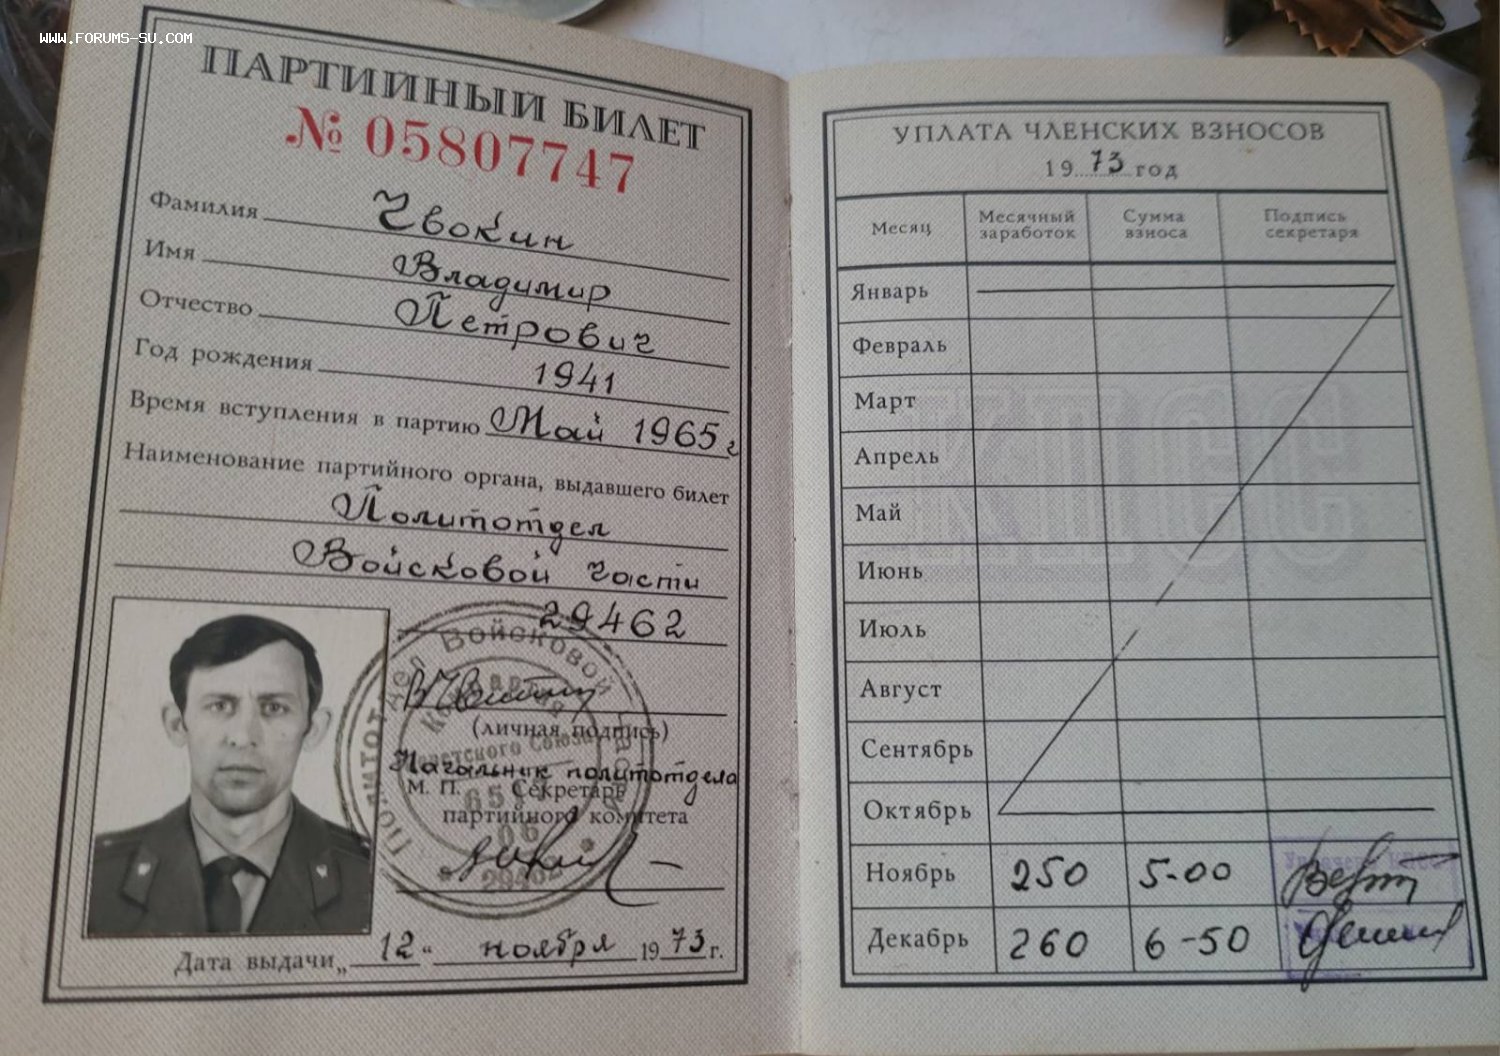 WWW.FORUMS-SU.COM
ПАРТИЙНЫЙ БИЛЕТ
№ 05807747
Фамилия Чвокин
Имя Владимир
Отчество Петрович
Год рождения 1941
Время вступления в партию Май 1965 г
Наименование партийного органа, выдавшего билет
Политотдел
Войсковой части
29462
(личная подпись)
Начальник политотдела
М. П. Секретарь
партийного комитета
Дата выдачи „ 12 “ ноября 1973 г.
Политотдел Войсковой
Советского Союза
29462
УПЛАТА ЧЛЕНСКИХ ВЗНОСОВ
1973 год
Месяц Месячный заработок Сумма взноса Подпись секретаря
Январь
Февраль
Март
Апрель
Май
Июнь
Июль
Август
Сентябрь
Октябрь
Ноябрь 250 5-00
Декабрь 260 6-50
КПСС